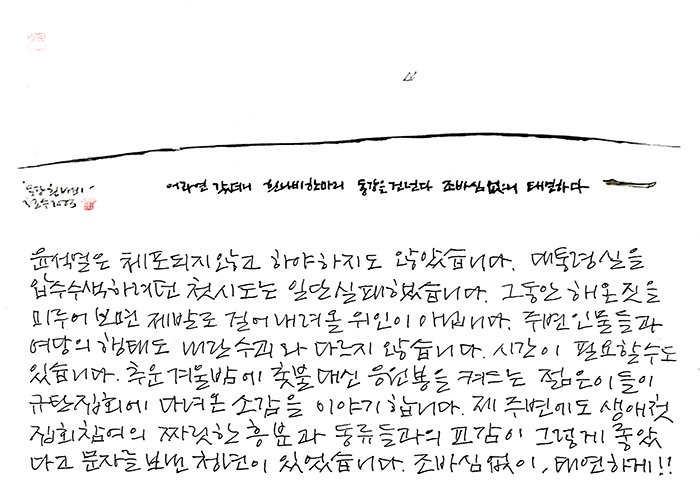 어라연 갔더니 흰나비 한마리 동강을 건넌다 조바심 없이 태연하다
윤석열은 체포되지 않고 하야하지도 않았습니다. 대통령실을
압수수색하려던 첫시도는 일단 실패했습니다. 그동안 해온 짓을
미루어 보면 제발로 걸어 내려올 위인이 아닙니다. 주변 인물들과
여당의 행태도 내란수괴와 다르지 않습니다. 시간이 필요할 수도
있습니다. 추운 겨울밤에 촛불 대신 응원봉을 켜드는 젊은이들이
규탄집회에 다녀온 소감을 이야기합니다. 제 주변에도 생애 첫
집회참여의 짜릿한 흥분과 동류들과의 교감이 그렇게 좋았
다고 문자를 보낸 청년이 있었습니다. 조바심 없이, 태연하게!!